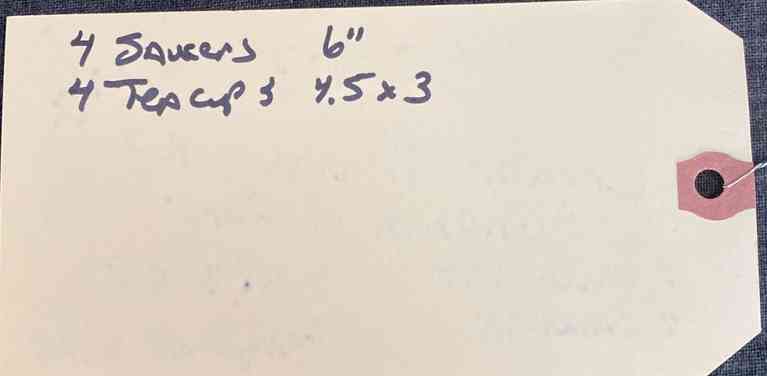 4 Saucers 6"
4 Teacups 4.5 x 3